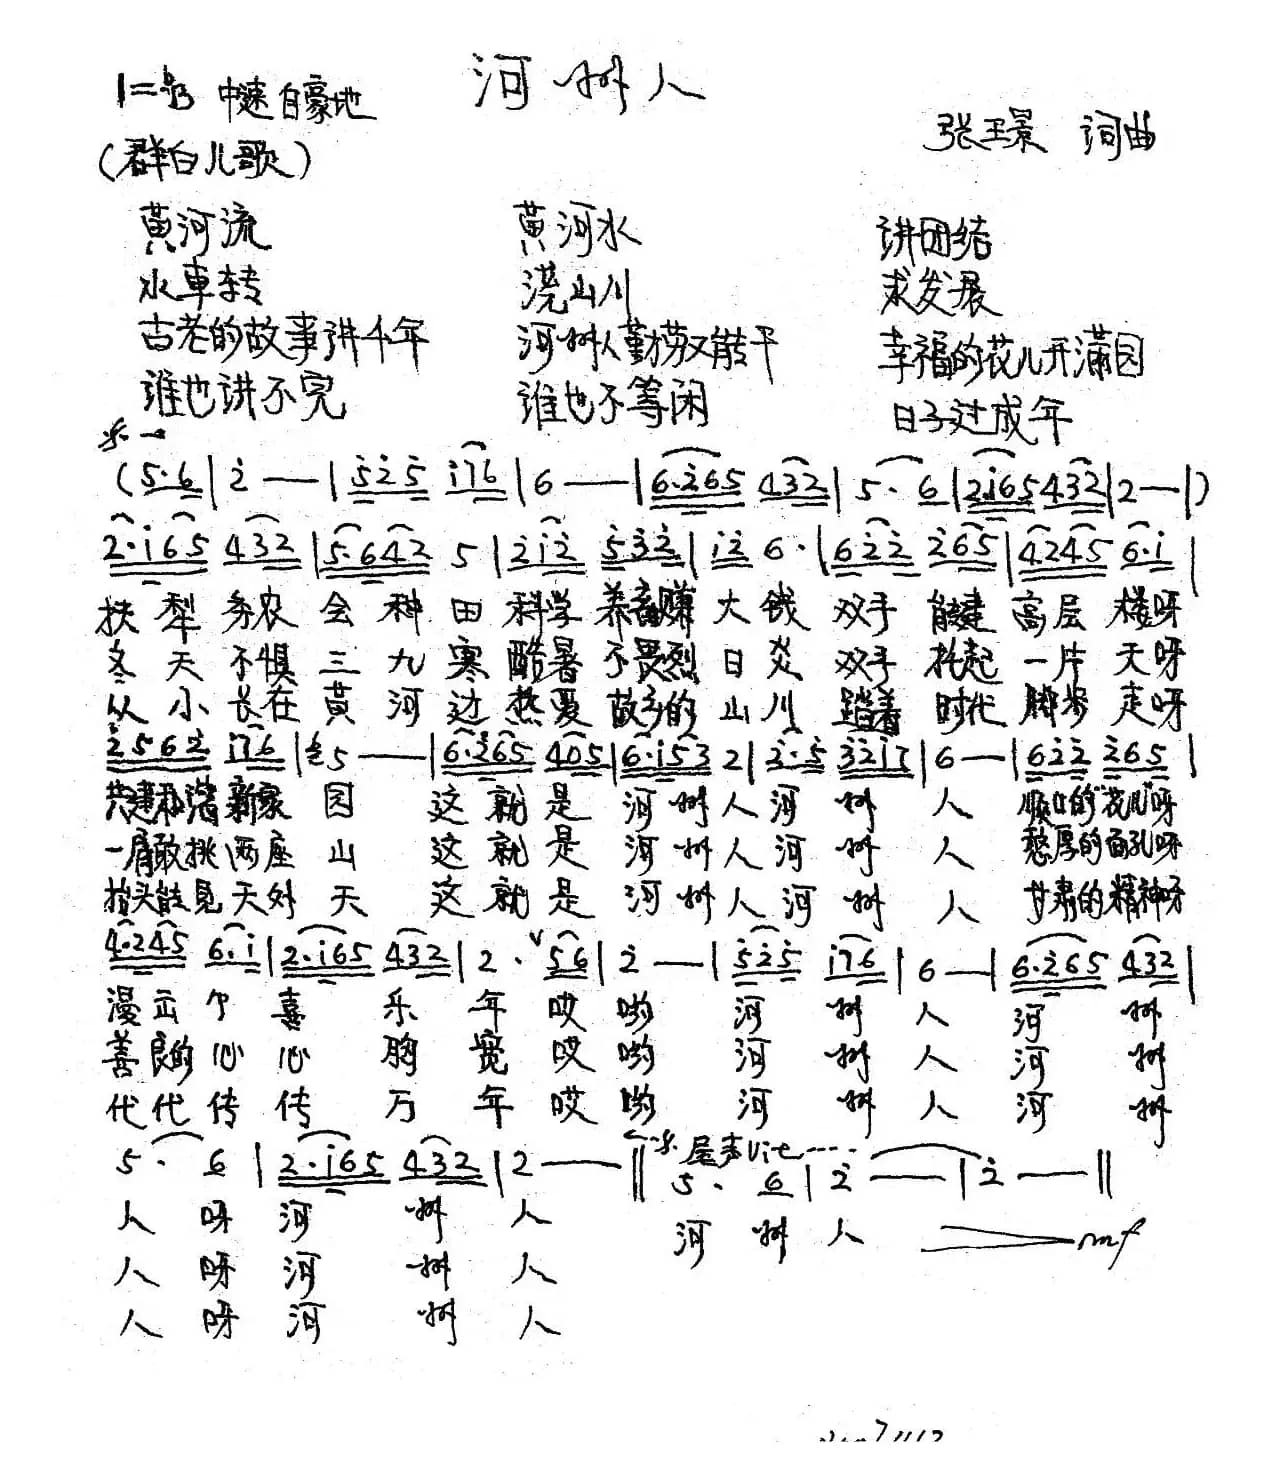 河州人
1=♭B 中速 自豪地
张玉景 词曲
(群白儿歌)
黄河流 黄河水 讲团结
水車转 浇山川 求发展
古老的故事讲千年 河州人勤劳又能干 幸福的花儿开满园
谁也讲不完 谁也不等闲 日子过成年
(5·6|2̇ — —|5̇2̇5̇ i76|6 — —|6·2̇65 432|5· 6|2·i65 432|2 —|)
2·i65 432|5·642 5|2̇i2̇ 5̇3̇2̇|i2̇ 6·|62̇2̇ 2̇65|4245 6·i|
扶犁务农会种田科学养畜赚大钱双手能建高层楼呀
冬天不惧三九寒酷暑不畏烈日炎双手托起一片天呀
从小长在黄河边热爱故乡的山川踏着时代脚步走呀
2̇562̇ i76|5 — —|6·2̇65 405|6·i53 2|2̇·5̇ 3̇2̇i7|6 —|62̇2̇ 2̇65|
共建和谐新家园 这就是河州人河州人 顺口的"花儿"呀
一肩敢挑两座山 这就是河州人河州人 憨厚的面孔呀
抬头能见天外天 这就是河州人河州人 甘肃的精神呀
4·245 6·i|2·i65 432|2· V 56|2̇ —|5̇2̇5̇ i76|6 —|6·2̇65 432|
漫云个喜乐年哎哟河州人河州
善良的心心胸宽哎哟河州人河州
代代传传万年哎哟河州人河州
5· 6|2·i65 432|2 — —‖ 尾声 5· 6|2̇ — —|2̇ — —‖
人呀河州人 河州人 mf
人呀河州人
人呀河州人